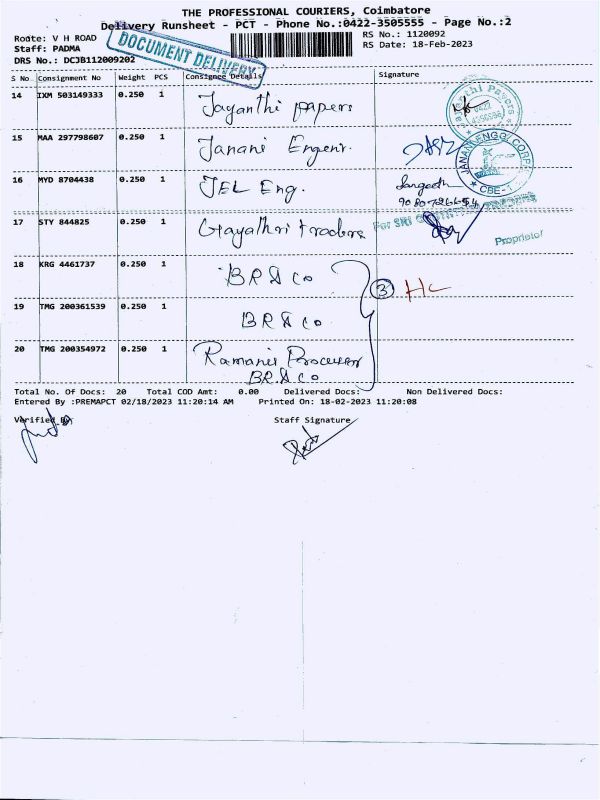 THE PROFESSIONAL COURIERS, Coimbatore
Delivery Runsheet - PCT - Phone No.:0422-3505555 - Page No.:2
Route: V H ROAD
RS No.: 1120092
Staff: PADMA
RS Date: 18-Feb-2023
DRS No.: DCJB112009202
DOCUMENT DELIVERY
S No Consignment No Weight PCS Consignee Details Signature
14 IXM 503149333 0.250 1 Jayanthi papers
15 MAA 297798607 0.250 1 Janani Engeni.
JANANI ENGG. CORP
CBE-1
16 MYD 8704438 0.250 1 JEL Eng. Sangeeth
17 STY 844825 0.250 1 Gayathri traders
For SRI
Proprietor
18 KRG 4461737 0.250 1 BR & co
3 HC
19 TMG 200361539 0.250 1 BR & co
20 TMG 200354972 0.250 1 Ramanis Processer
BR & co
Total No. Of Docs: 20 Total COD Amt: 0.00 Delivered Docs: Non Delivered Docs:
Entered By :PREMAPCT 02/18/2023 11:20:14 AM Printed On: 18-02-2023 11:20:08
Verified By
Staff Signature